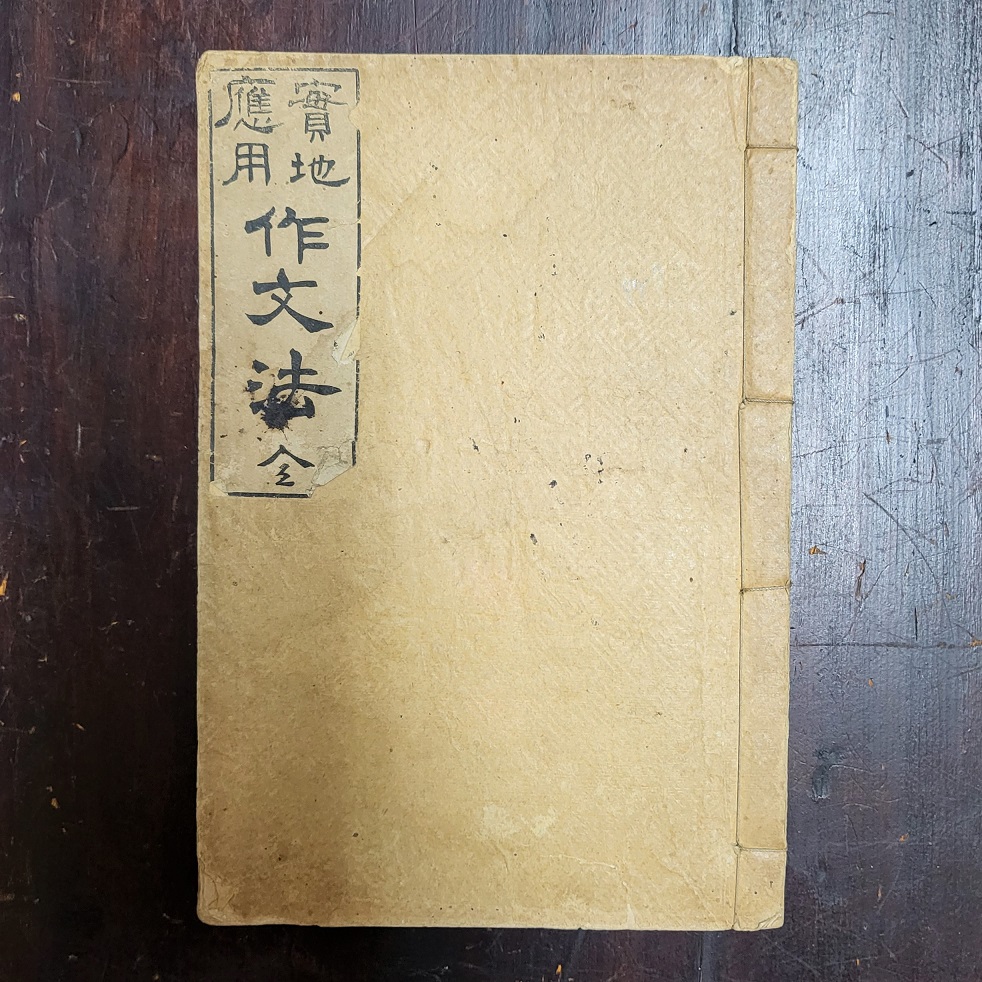 實地
應用
作文法 全